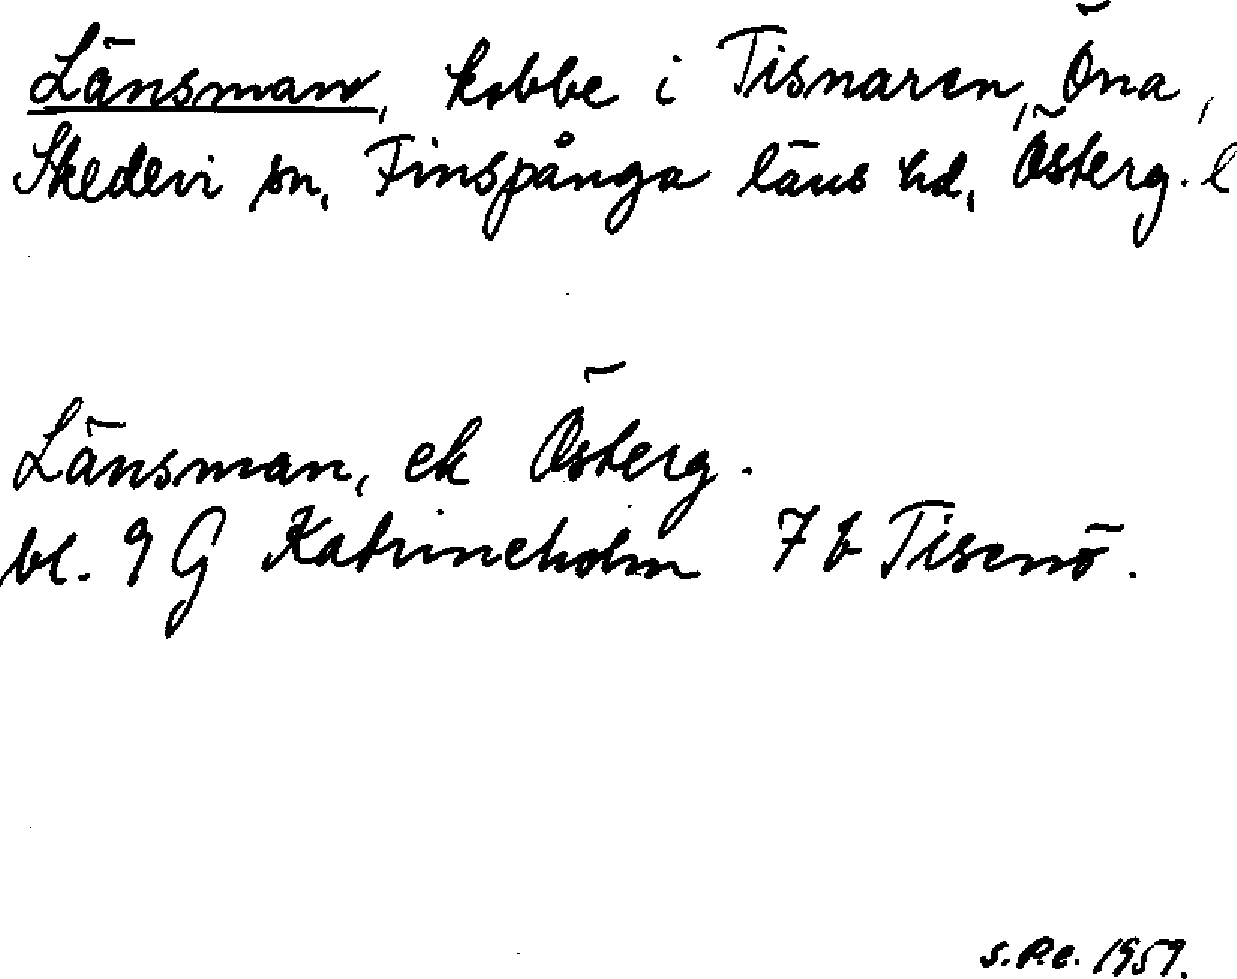 Länsman, kobbe i Tisnaren, Öna,
Skedevi sn, Finspånga läns hd, Österg. l
Länsman, ek Österg.
bl. 9 G Katrineholm 7 b Tisenö.
S.P.e. 1959.